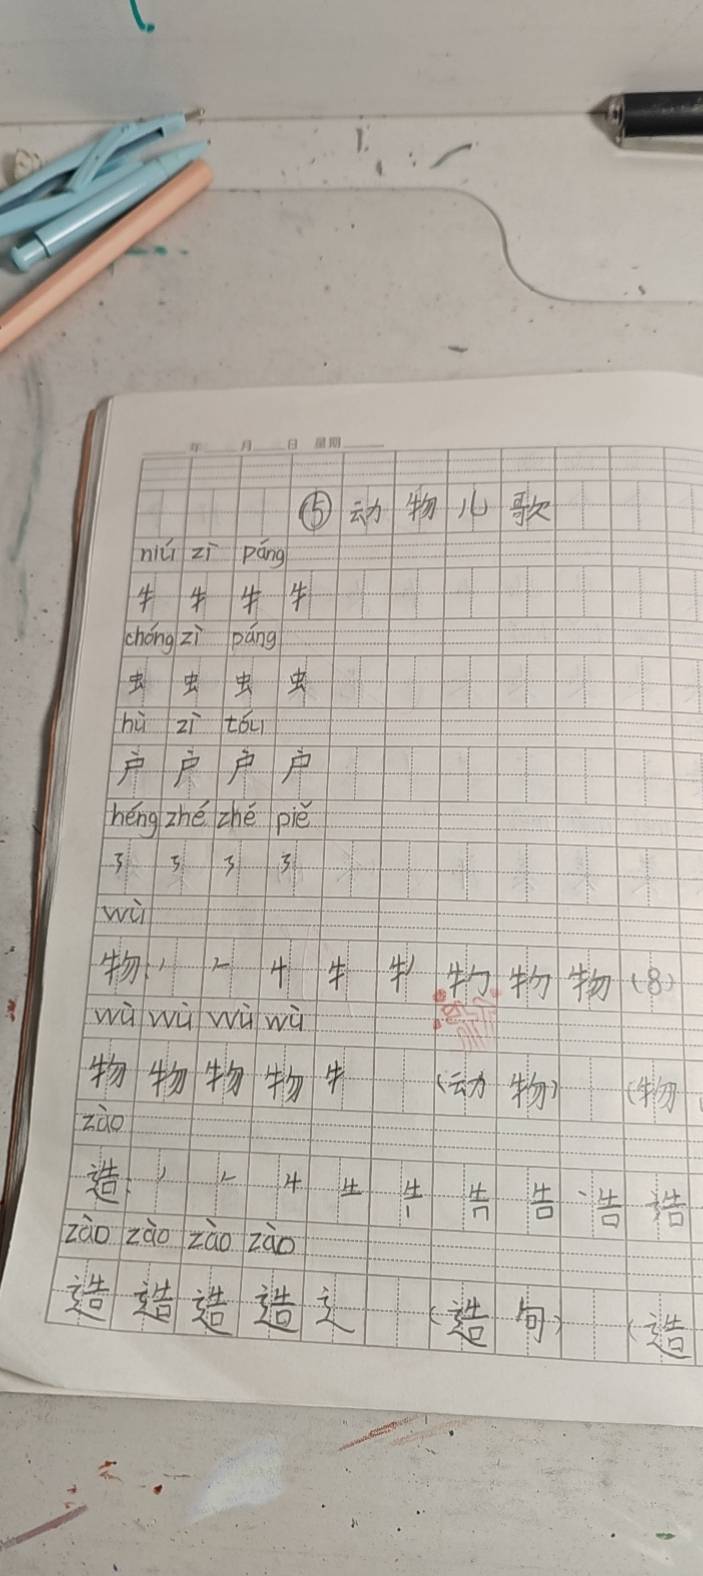 年 月 日 星期
⑤ 动物儿歌
niú zì páng
牜 牜 牜 牜
chóng zì páng
虫 虫 虫 虫
hù zì tóu
户 户 户 户
héng zhé zhé piě
㇋ ㇋ ㇋ ㇋
wù
物: 丿 𠂉 牛 牜 牜丿 牞 物 物 (8)
wù wù wù wù
物 物 物 物 牜 (动物) (物
zào
造: 丿 𠂉 牛 生 告 造
zào zào zào zào
造 造 造 造 辶 (造句) (造